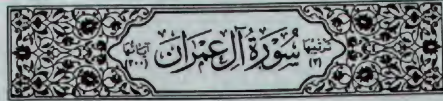 ترتيبها (٣) سُورَةُ آلِ عِمْرَانَ آياتها (٢٠٠)